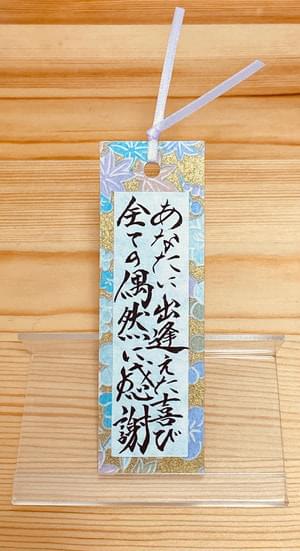 あなたに出逢えた喜び
全ての偶然に感謝